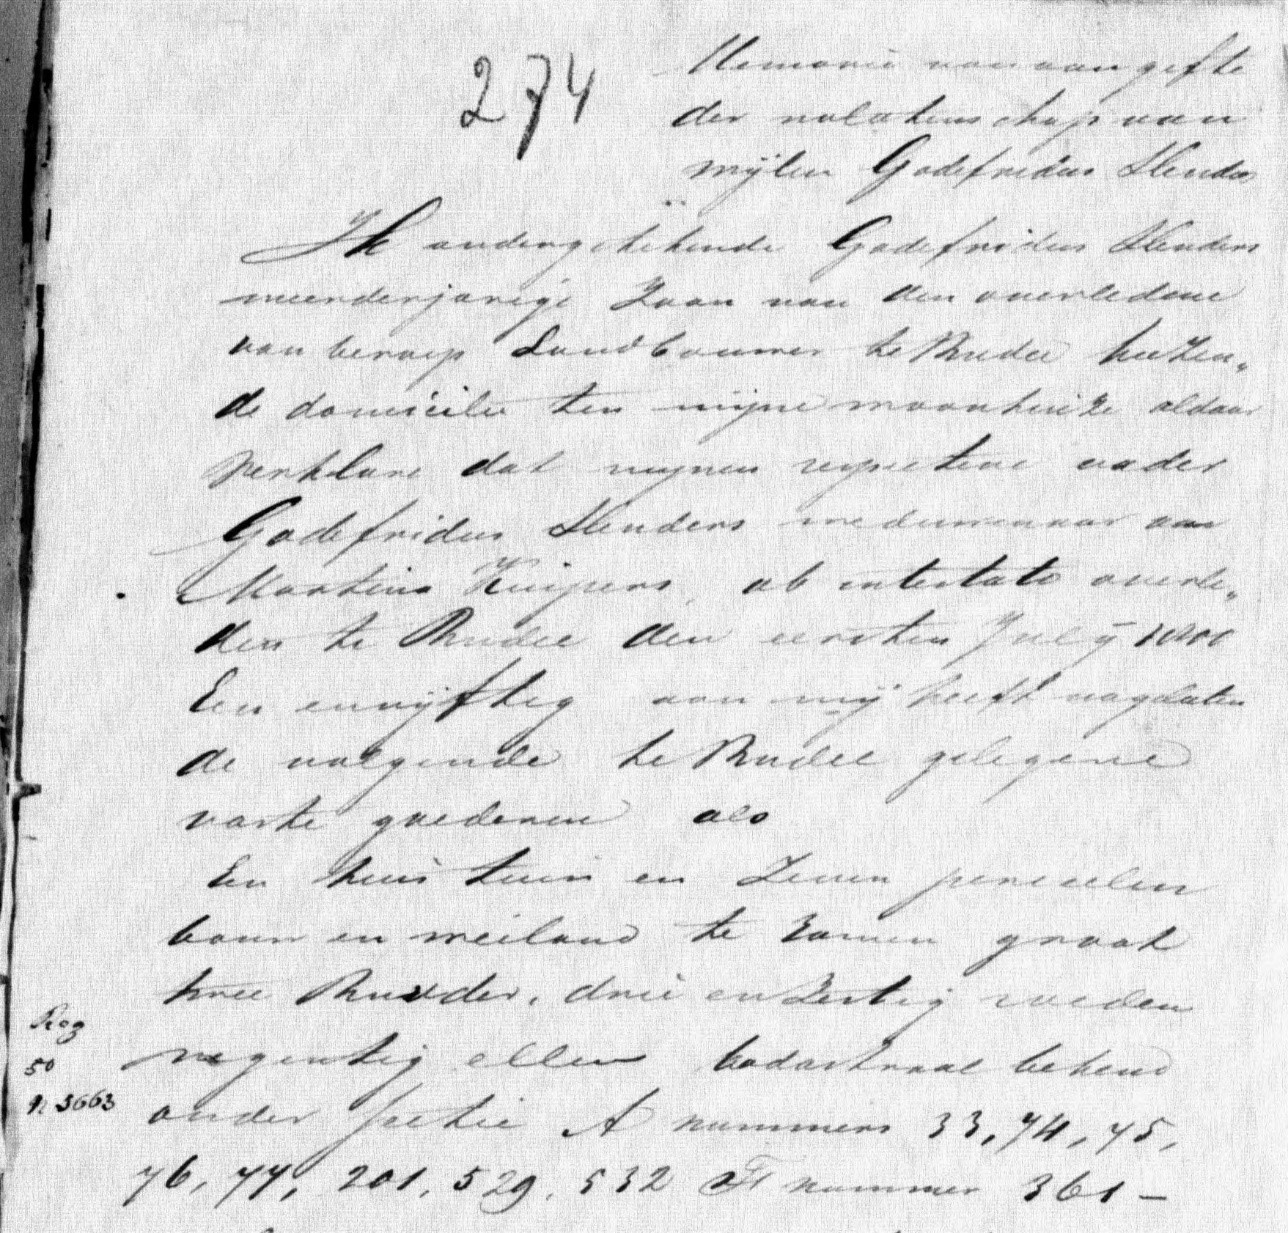 274
Memorie van aangifte
der nalatenschap van
wijlen Godefridus Slenders
Ik ondergetekende Godefridus Slenders
meerderjarige Zoon van den overledene
van beroep Landbouwer te Budel kiezen„
de domicilie ten mijne woonhuize aldaar
verklare dat mynen vader
Godefridus Slenders weduwenaar van
Martina Kuijpers, ab intestato overle„
den te Budel den eersten July 18
Een envyftig aan mij heeft nagelaten
de volgende te Budel gelegene
vaste goederen als
Een huis tuin en Zeven perceelen
bouw en weiland te Zamen groot
twee Bunder, drie en Zestig roeden
negentig ellen kadastraal bekend
Reg
50
N 3663
onder Sectie A nummers 33, 74, 75,
76, 77, 201, 529, 532 F nummer 361 —